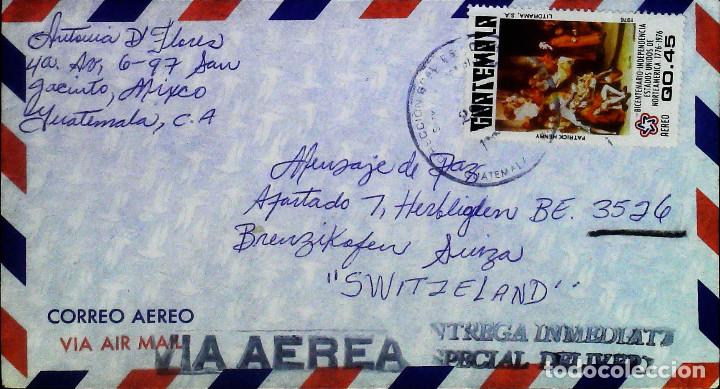 Antonia D' Flores
4a. Av, 6-97 San
Jacinto, Mixco
Guatemala, C.A
GUATEMALA
LITORAMA, S.A.
1976
BICENTENARIO-INDEPENDENCIA
ESTADOS UNIDOS DE
NORTEAMERICA 1776-1976
AEREO
Q0.45
PATRICK HENRY
GUATEMALA
Mensaje de Paz
Apartado 7, Herbligen BE. 3526
Brenzikofen Suiza
"SWITZELAND"
CORREO AEREO
VIA AIR MAIL
VIA AEREA
NTREGA INMEDIATA
SPECIAL DELIVERY
todocoleccion.net